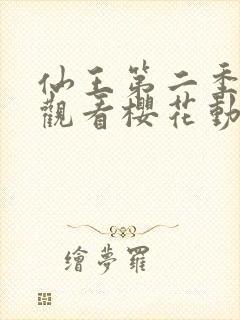 仙王第二季
觀看櫻花動
繪夢羅